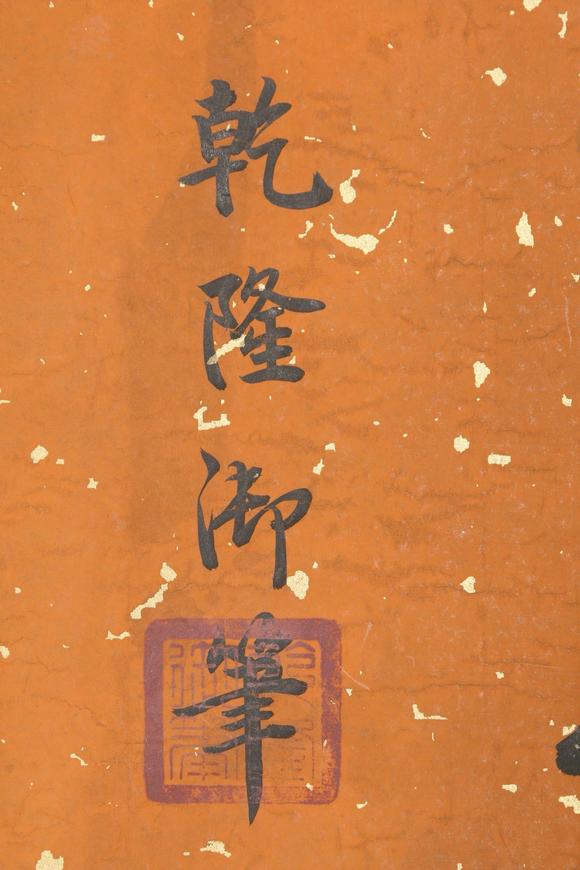 乾隆御筆